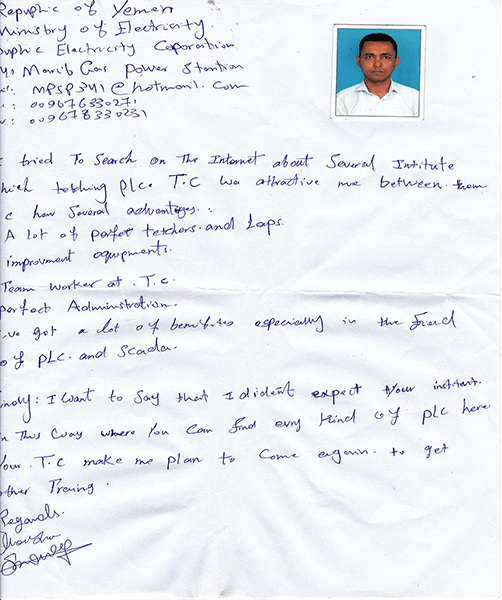 Republic of Yemen
Ministry of Electricity
ouplic Electricity Coporation
Marib Gas Power Stantion
MPSP341@hotmail.com
: 009676330271
: 009678330231
tried To Search on The Internet about Several Institute
hich teching plc. T.C wa attractive me between them
c hav Several advantages.:
A lot of perfet tetchers and Laps.
improvment equepments.
Team worker at T.C.
perfect Adminstration.
ve got a lot of benifites especially in the
of plc. and Scada.
: I want to Say that I dident expect Your institut.
n This Way where You Can find evry Kind of plc here
Your T.C make me plan to Come again to get
other Trening.
Regards.